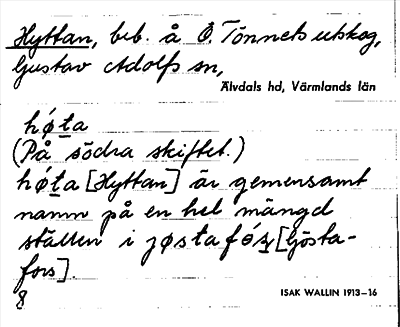 Hyttan, beb. å Ö. Tönnets utskog,
Gustav Adolfs sn,
Älvdals hd, Värmlands län
hǿta
(På södra skiftet.)
hǿta [Hyttan] är gemensamt
namn på en hel mängd
ställen i jøstafórs [Gösta-
fors].
8
ISAK WALLIN 1913–16